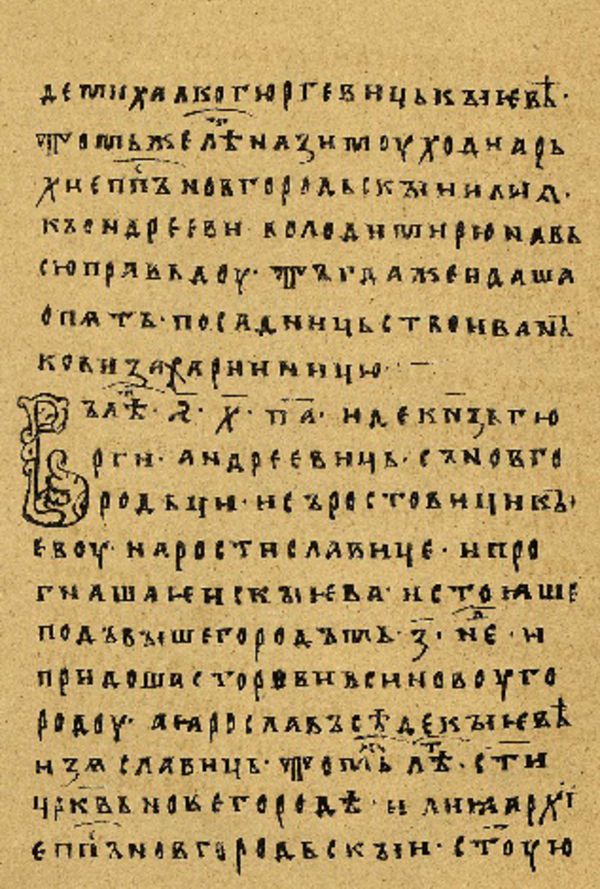 де михалко гюргевиць кꙑѥвѣ ·
томьже лѣⷮ на зимоу ходи арь
хиепⷭпъ новгородьскꙑи илиꙗ ·
къ ондрееви · володимирю на вь
сю правьдоу · тъгда же и даша
опѧть · посадницьство иванⸯ
кови захариницю · —
Въ лѣⷮ · ҂ѕ҃ · х҃ · п҃а · иде кн҃зь гю
рги · андреевиць · съ новго
родьци · и съ ростовици кꙑ
ѥвоу · на ростиславице · и про
гнаша ѥ ис кꙑѥва · и стоꙗше
подъ вꙑшегородъмь · з҃ · неⷣ · и
придоша сторови вси новоуго
родоу · а ꙗрославъ сѣде кꙑѥвѣ
изѧславиць · томь лѣⷮ · ст҃и
цр҃кв҃ь новегородѣ · илиꙗ арх҃ı
еп҃пъ новгородьскꙑи · ст҃ую